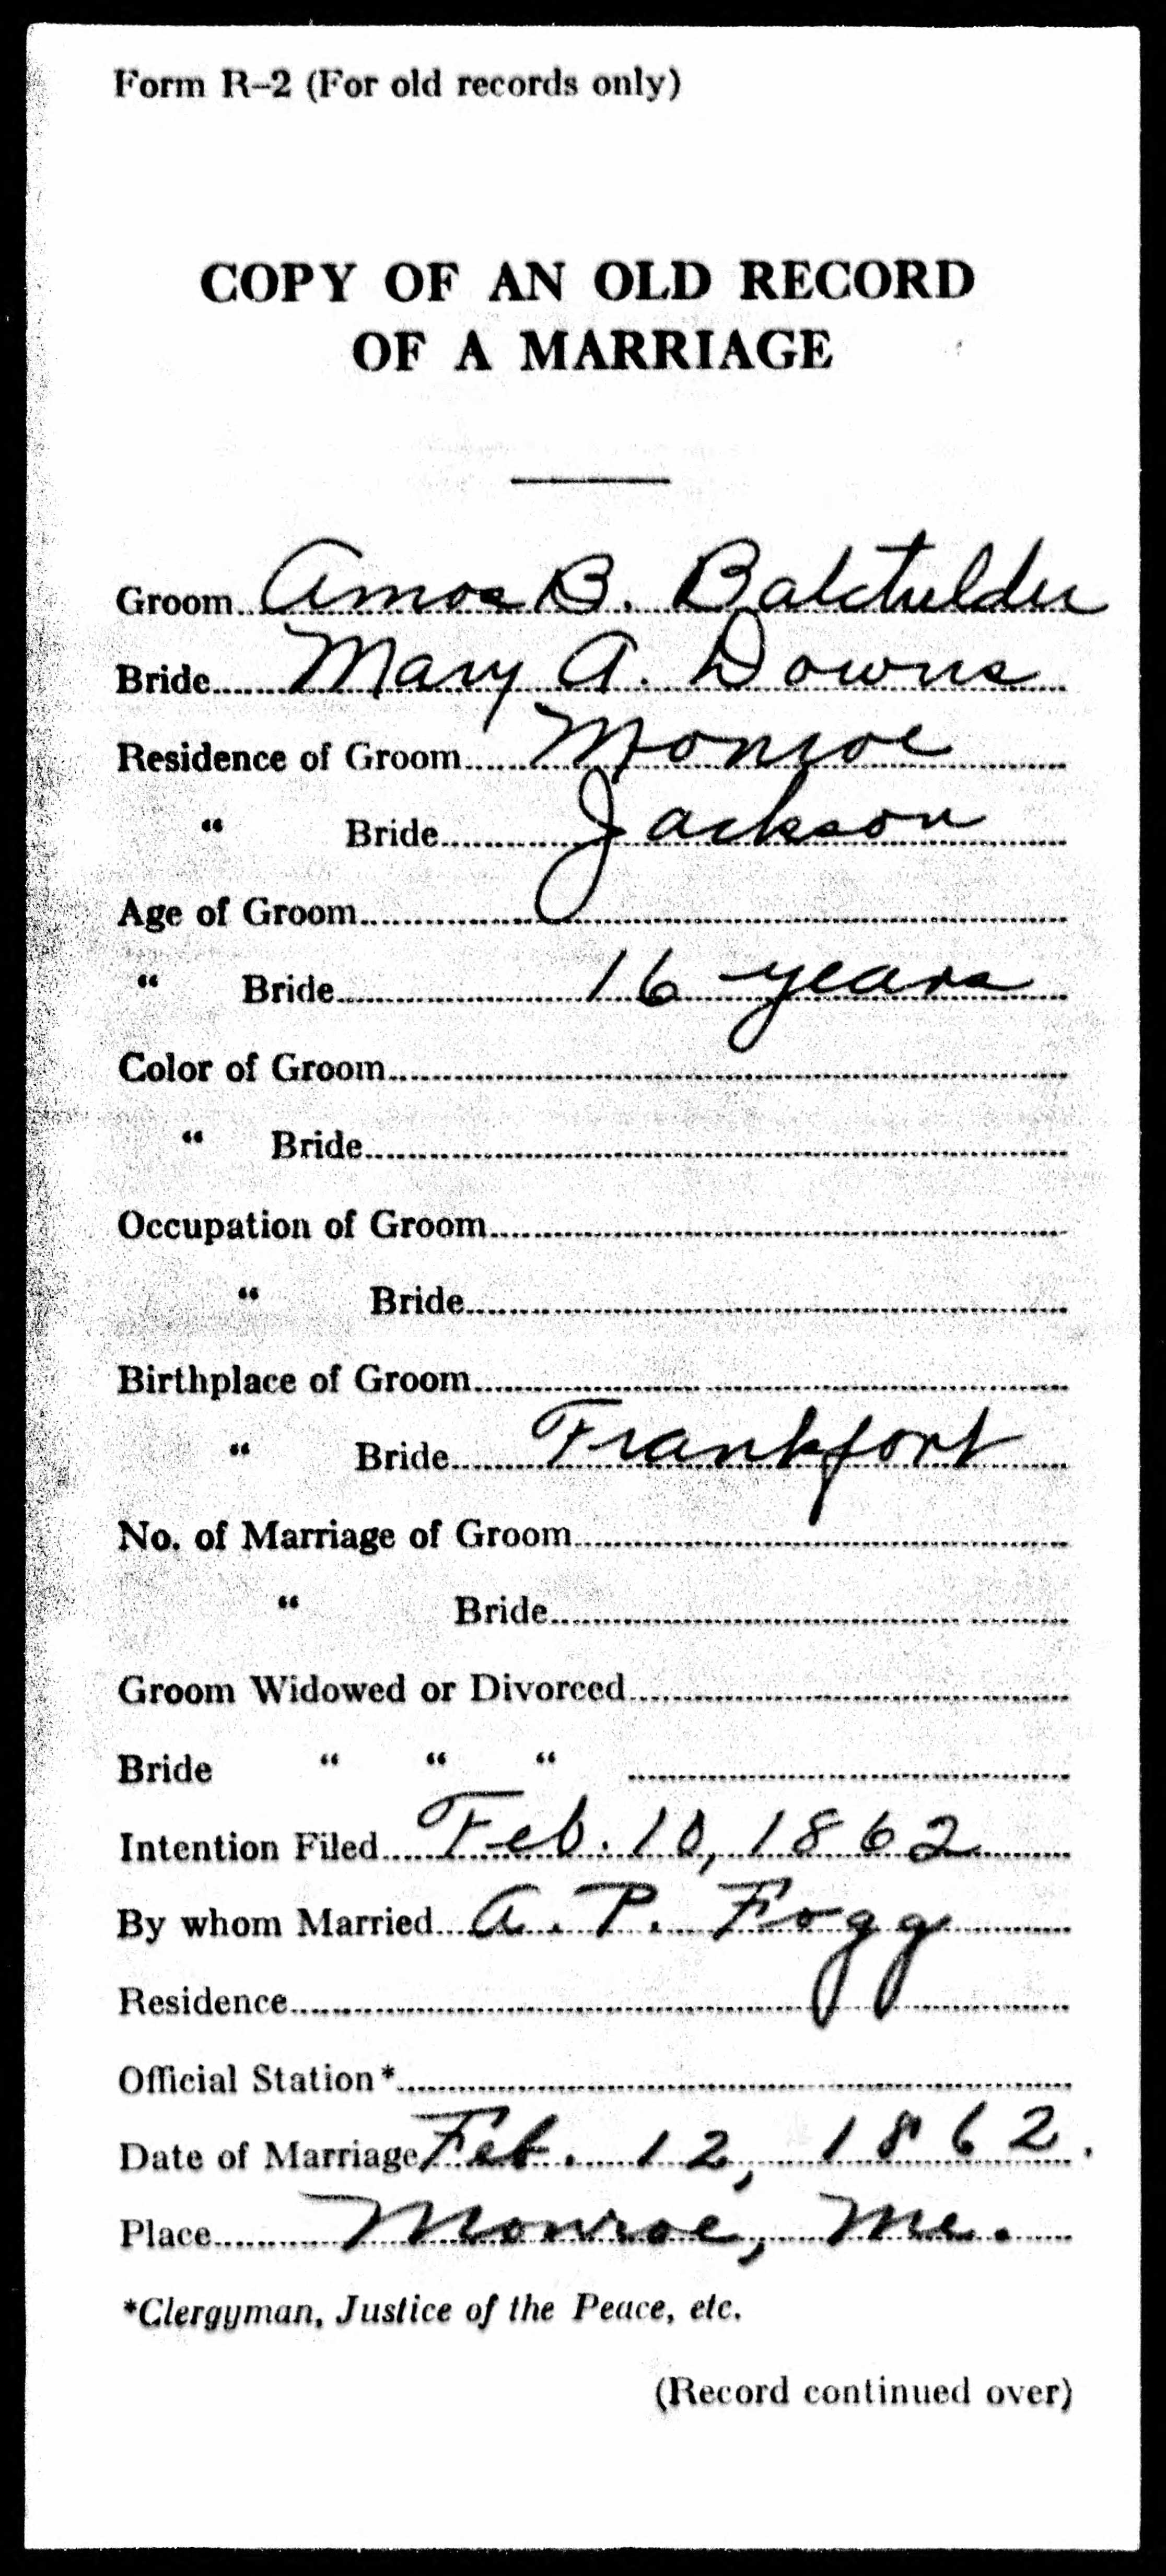 Form R-2 (For old records only)
COPY OF AN OLD RECORD
OF A MARRIAGE
Groom Amos B. Batchelder
Bride Mary A. Downs
Residence of Groom Monroe
" Bride Jackson
Age of Groom
" Bride 16 years
Color of Groom
" Bride
Occupation of Groom
" Bride
Birthplace of Groom
" Bride Frankfort
No. of Marriage of Groom
" Bride
Groom Widowed or Divorced
Bride " " "
Intention Filed Feb. 10, 1862
By whom Married A. P. Fogg
Residence
Official Station*
Date of Marriage Feb. 12, 1862.
Place Monroe, Me.
*Clergyman, Justice of the Peace, etc.
(Record continued over)